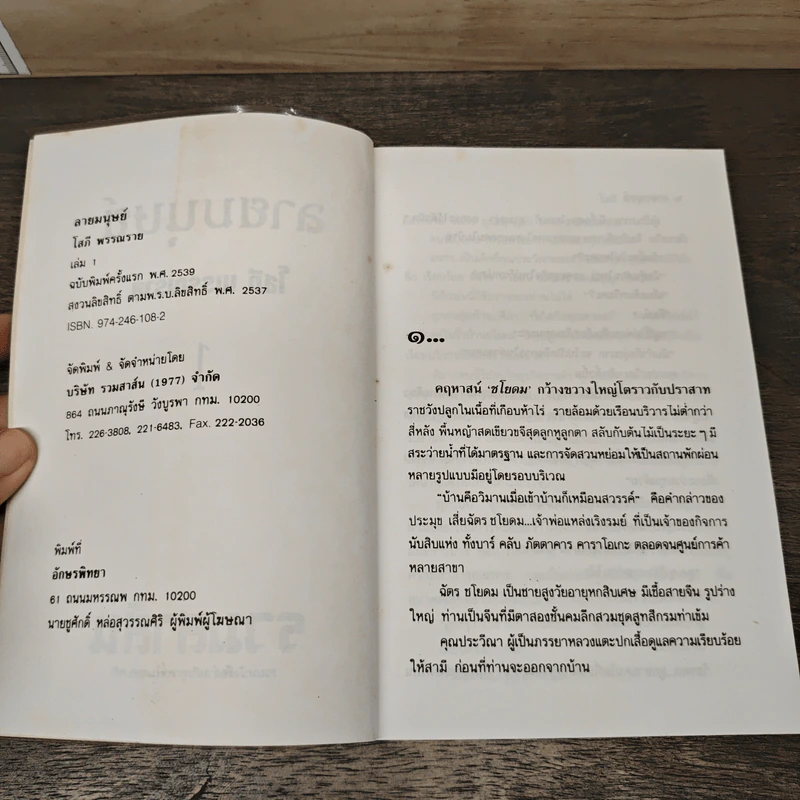 ลายมนุษย์
โสภี พรรณราย
เล่ม 1
ฉบับพิมพ์ครั้งแรก พ.ศ. 2539
สงวนลิขสิทธิ์ ตามพ.ร.บ.ลิขสิทธิ์ พ.ศ. 2537
ISBN. 974-246-108-2
จัดพิมพ์ & จัดจำหน่ายโดย
บริษัท รวมสาส์น (1977) จำกัด
864 ถนนภาณุรังษี วังบูรพา กทม. 10200
โทร. 226-3808, 221-6483, Fax. 222-2036
พิมพ์ที่
อักษรพิทยา
61 ถนนมหรรณพ กทม. 10200
นายชูศักดิ์ หล่อสุวรรณศิริ ผู้พิมพ์ผู้โฆษณา
๑...
คฤหาสน์ 'ชโยดม' กว้างขวางใหญ่โตราวกับปราสาท
ราชวังปลูกในเนื้อที่เกือบห้าไร่ รายล้อมด้วยเรือนบริวารไม่ต่ำกว่า
สี่หลัง พื้นหญ้าสดเขียวขจีสุดลูกหูลูกตา สลับกับต้นไม้เป็นระยะ ๆ มี
สระว่ายน้ำที่ได้มาตรฐาน และการจัดสวนหย่อมให้เป็นสถานพักผ่อน
หลายรูปแบบมีอยู่โดยรอบบริเวณ
"บ้านคือวิมานเมื่อเข้าบ้านก็เหมือนสวรรค์" คือคำกล่าวของ
ประมุข เสี่ยฉัตร ชโยดม...เจ้าพ่อแหล่งเริงรมย์ ที่เป็นเจ้าของกิจการ
นับสิบแห่ง ทั้งบาร์ คลับ ภัตตาคาร คาราโอเกะ ตลอดจนศูนย์การค้า
หลายสาขา
ฉัตร ชโยดม เป็นชายสูงวัยอายุหกสิบเศษ มีเชื้อสายจีน รูปร่าง
ใหญ่ ท่านเป็นจีนที่มีตาสองชั้นคมลึกสวมชุดสูทสีกรมท่าเข้ม
คุณประวีณา ผู้เป็นภรรยาหลวงแตะปกเสื้อดูแลความเรียบร้อย
ให้สามี ก่อนที่ท่านจะออกจากบ้าน